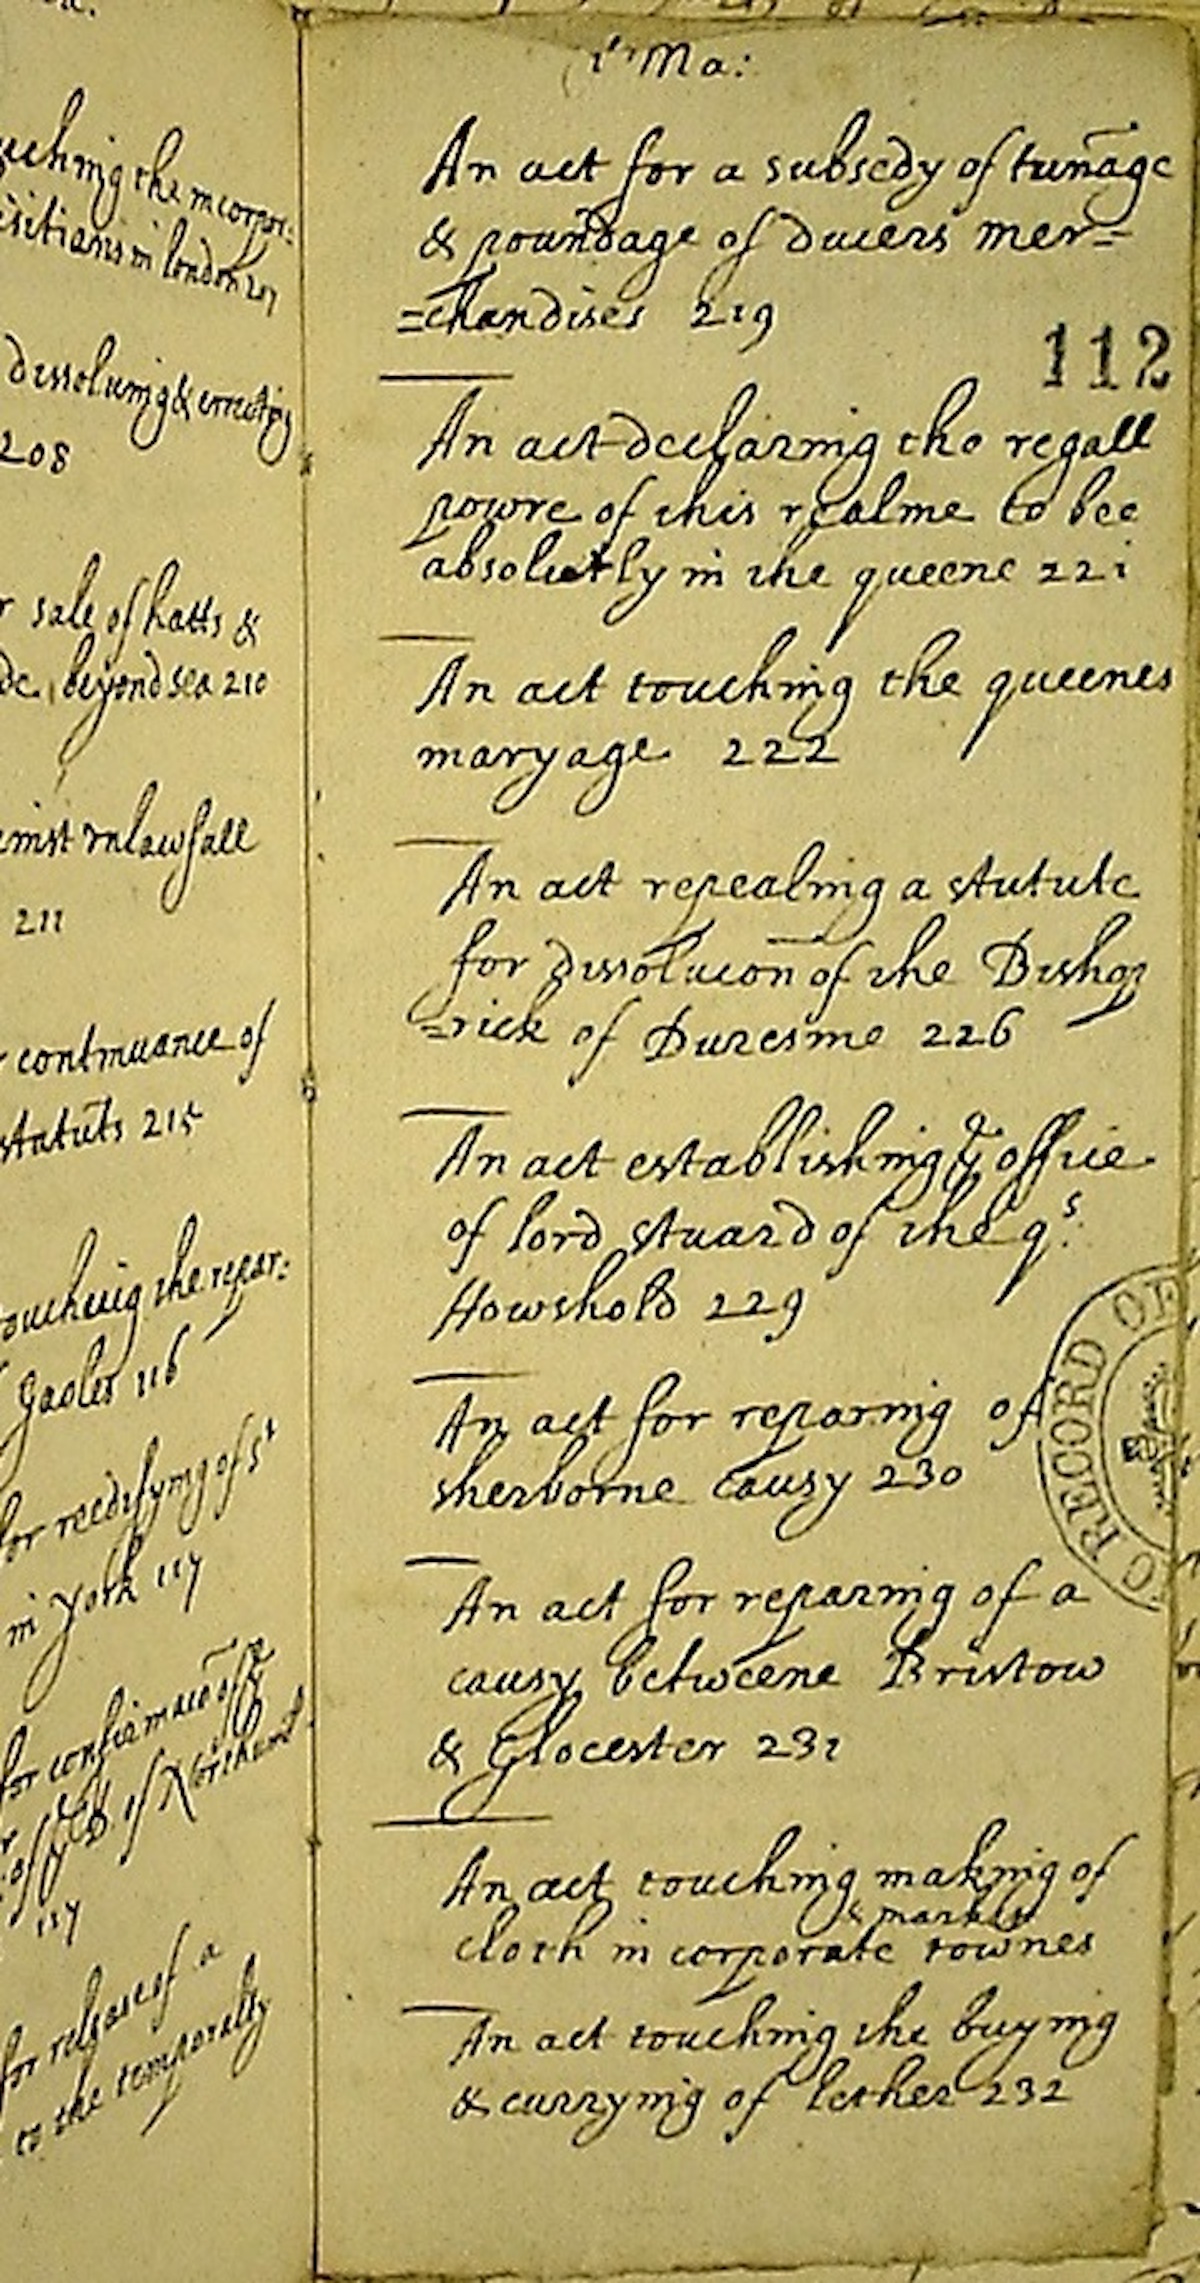 uching the incorpor:
isitians in london 207
dissoluinig & errecting
208
r sale of hatts &
de beyond sea 210
einst vnlawfull
211
r continuance of
statuts 215
touching the repar:
gaoles 116
for reedifying of St
in york 117
for confirmacō of ye
of ye D of Northumb
117
for release of a
to the temporalty
1º Ma:
An act for a subsedy of tun̄age
& poun̄dage of diuers mer=
=chandises 219
112
An act declaring the regall
powre of this realme to bee
absolutly in the queene 221
An act touching the queenes
maryage 222
An act repealing a statute
for dissolucōn of the Bishop
=rick of Duresme 226
An act establishing ye office
of lord stuard of the qs:
Howshold 229
An act for reparing of
sherborne causy 230
An act for reparing of a
causy betweene Bristow
& Glocester 231
An act touching making of
& market
cloth in corporate townes
An act touching the buying
& currying of lether 232
C RECORD OF